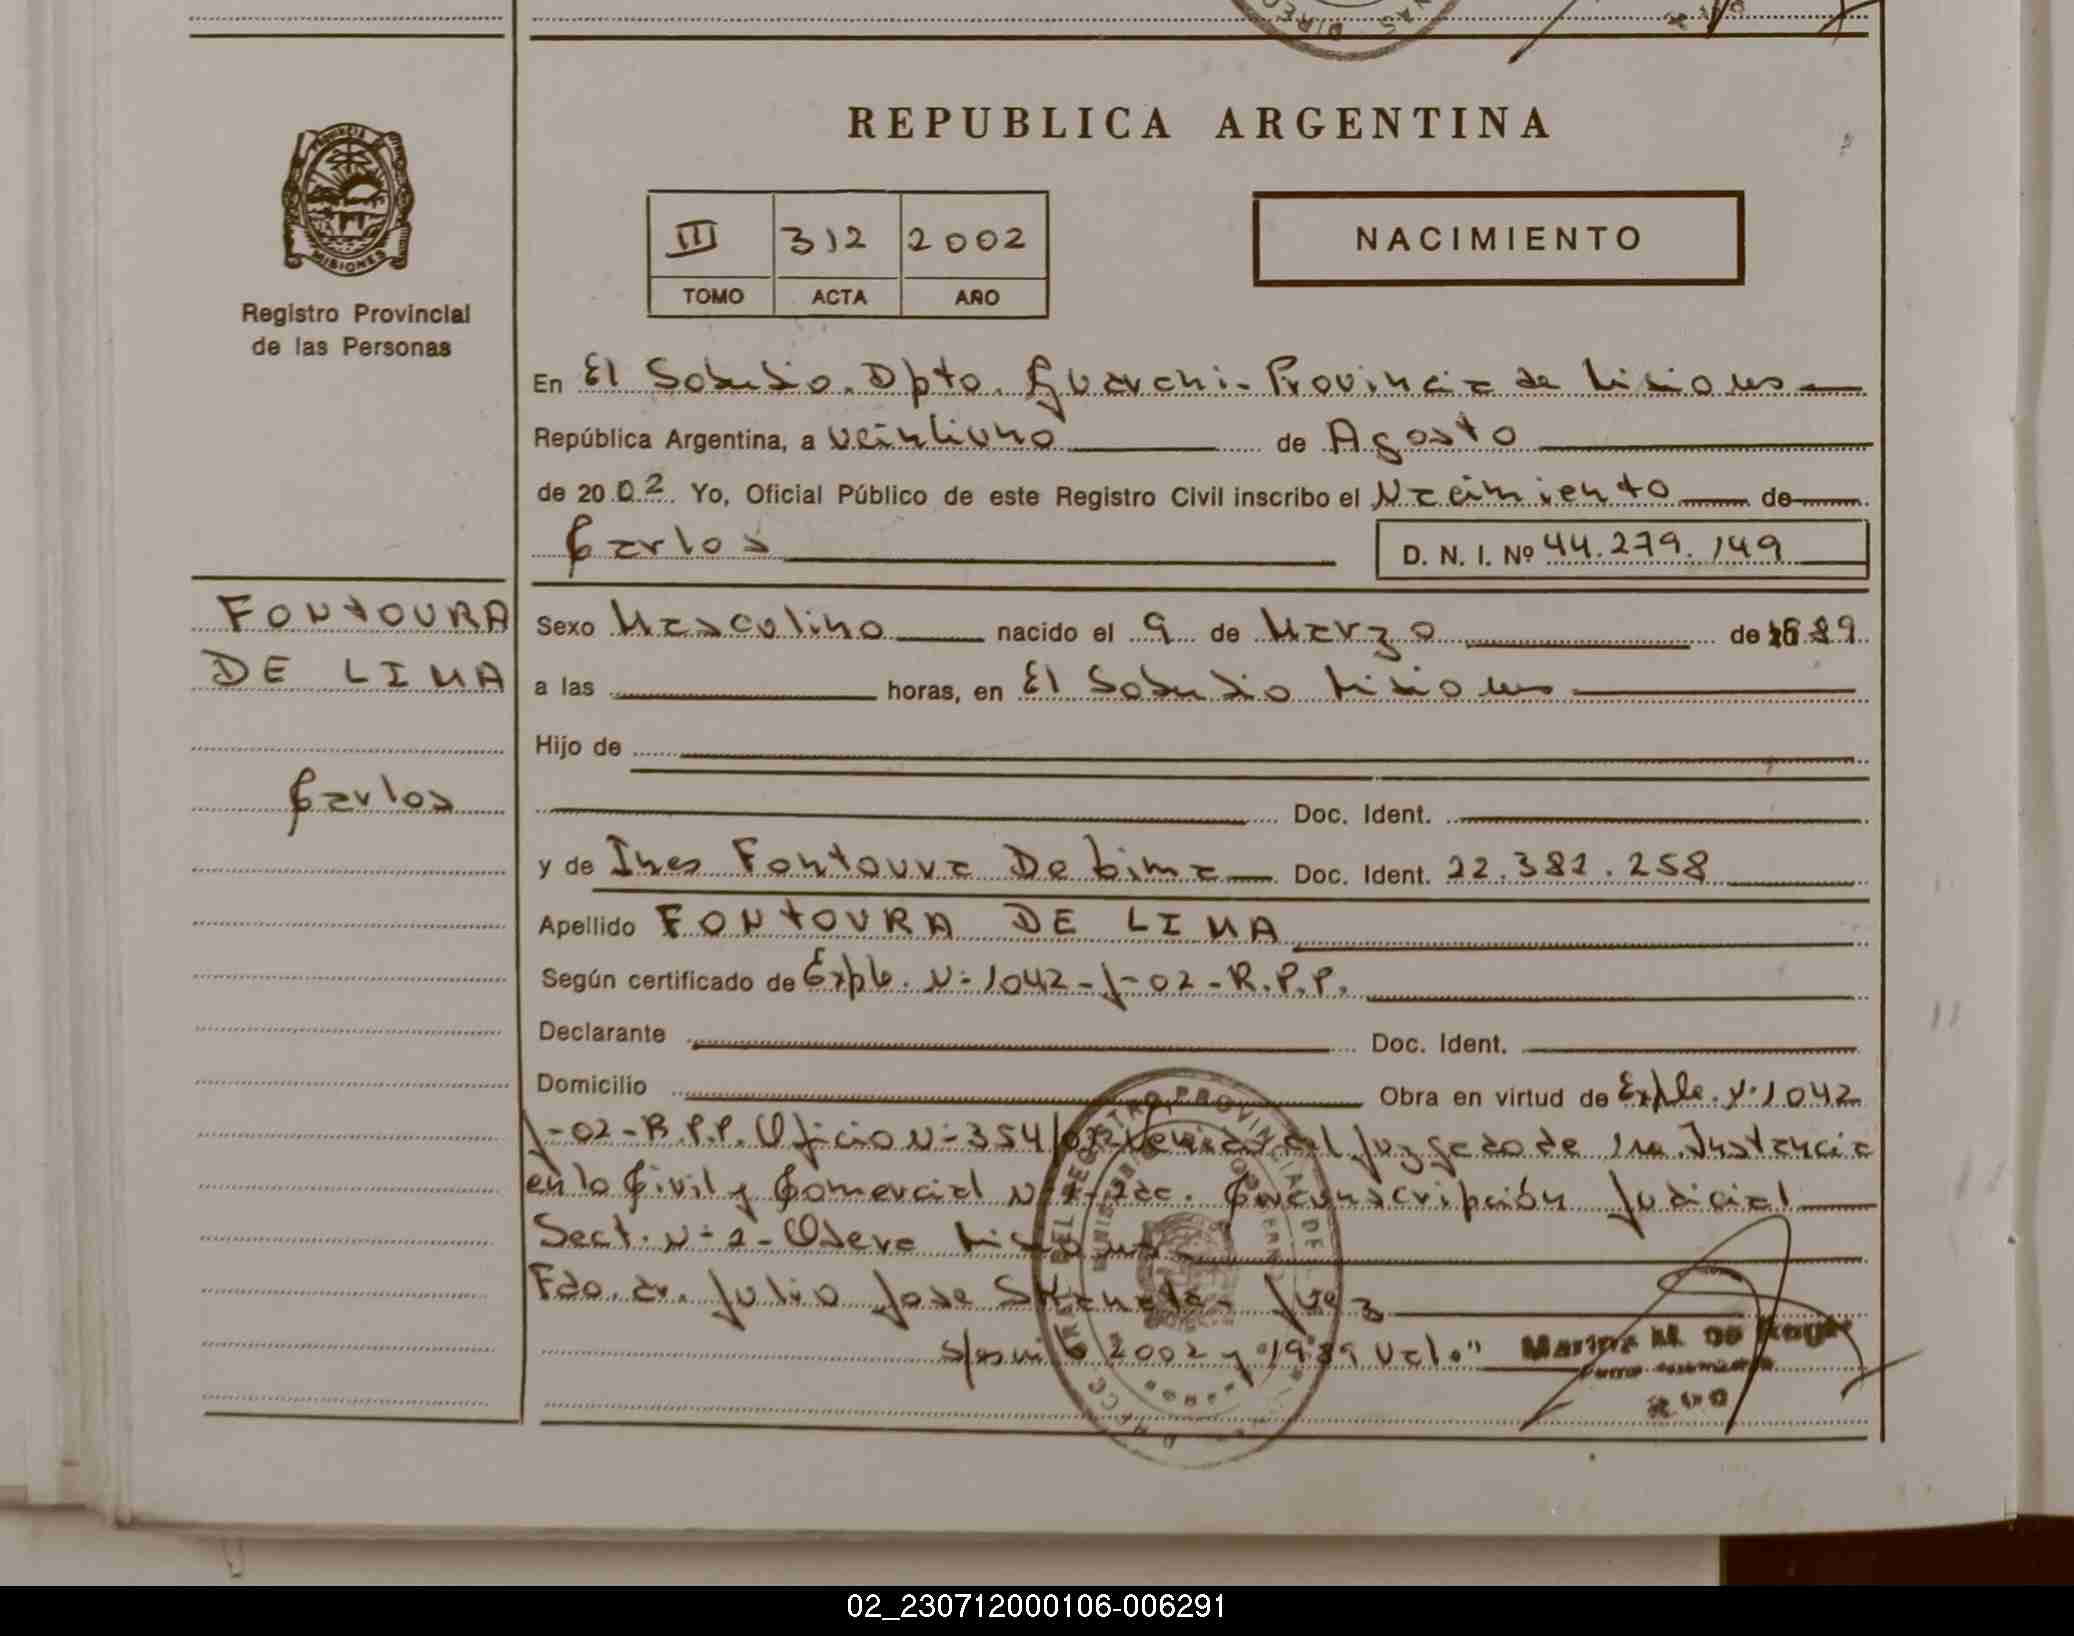 REPUBLICA ARGENTINA
PROVINCIA
MISIONES
Registro Provincial
de las Personas
III 312 2002
TOMO ACTA AÑO
NACIMIENTO
En El Soberbio. Dpto. Guarani - Provincia de Misiones
República Argentina, a veintiuno de Agosto
de 2002 Yo, Oficial Público de este Registro Civil inscribo el Nacimiento de
Carlos
D. N. I. Nº 44.279.149
FONTOURA
DE LIMA
Carlos
Sexo Masculino nacido el 9 de Marzo de 1989
a las horas, en El Soberbio Misiones
Hijo de
Doc. Ident.
y de Ines Fontoura De Lima Doc. Ident. 22.382.258
Apellido FONTOURA DE LIMA
Según certificado de Expte. Nº 1042-J-02-R.P.P.
Declarante Doc. Ident.
Domicilio Obra en virtud de Expte. Nº 1042
J-02-R.P.P. Oficio Nº 354/02 del Juzgado de 1ra. Instancia
en lo Civil y Comercial 2da. Circunscripción Judicial
Sect. Nº 2 - Obera Misiones
Fdo. dr. Julio Jose Juez
2002 y "1989 Vale"
02_230712000106-006291